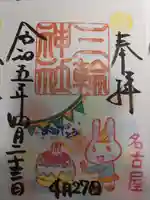 奉拝
名古屋
三輪
神社
令和五年四月二十三日
4月27日